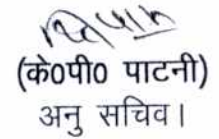 (के0पी0 पाटनी)
अनु सचिव।